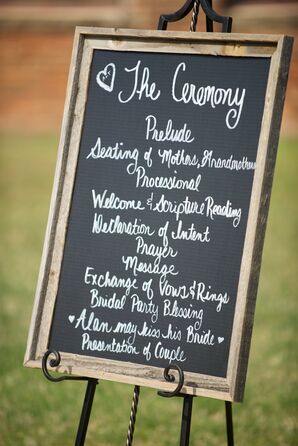 The Ceremony
Prelude
Seating of Mothers, Grandmothers
Processional
Welcome & Scripture Reading
Declaration of Intent
Prayer
Message
Exchange of Vows & Rings
Bridal Party Blessing
Alan may kiss his Bride
Presentation of Couple